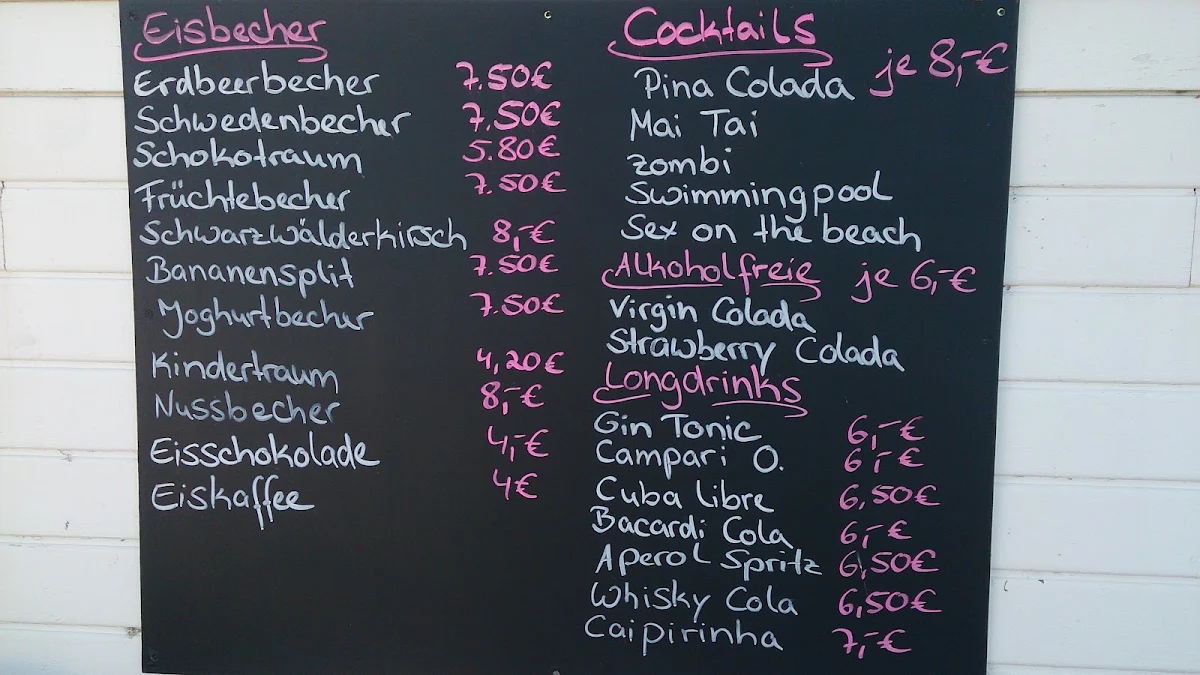 Eisbecher
Erdbeerbecher 7.50€
Schwedenbecher 7.50€
Schokotraum 5.80€
Früchtebecher 7.50€
Schwarzwälderkirsch 8,-€
Bananensplit 7.50€
Joghurtbecher 7.50€
Kindertraum 4,20€
Nussbecher 8,-€
Eisschokolade 4,-€
Eiskaffee 4€
Cocktails je 8,-€
Pina Colada
Mai Tai
Zombi
Swimmingpool
Sex on the beach
Alkoholfreie je 6,-€
Virgin Colada
Strawberry Colada
Longdrinks
Gin Tonic 6,-€
Campari O. 6,-€
Cuba Libre 6,50€
Bacardi Cola 6,-€
Aperol Spritz 6,50€
Whisky Cola 6,50€
Caipirinha 7,-€